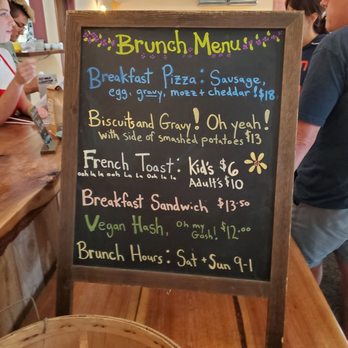 Brunch Menu
Breakfast Pizza: Sausage,
egg, gravy, mozz + cheddar! $18
Biscuits and Gravy! Oh yeah!
with side of smashed potatoes $13
French Toast: Kid's $6
ooh la la ooh La La Ooh la la Adult's $10
Breakfast Sandwich $13.50
Vegan Hash, Oh my Gash! $12.00
Brunch Hours: Sat + Sun 9-1